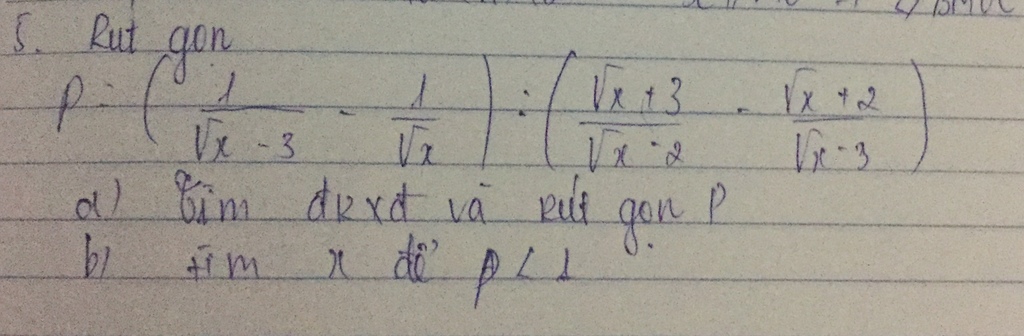 5. Rut gọn
P = ( 1/(√x - 3) - 1/√x ) : ( (√x + 3)/(√x - 2) - (√x + 2)/(√x - 3) )
a) Tìm đkxđ và rút gọn P
b) tìm x để P < 1